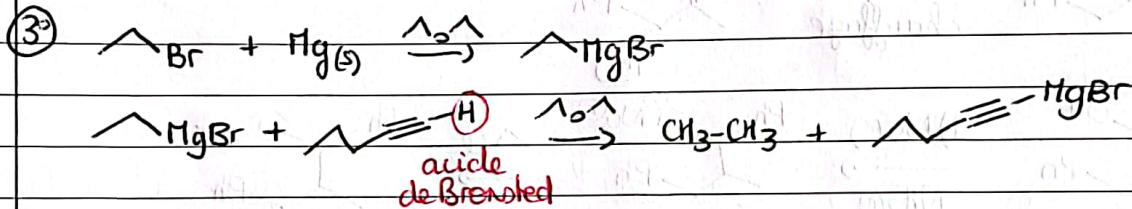 3°) Br + Mg(s) → MgBr
MgBr + ≡-H → CH3-CH3 + ≡-MgBr
acide
de Bronsted